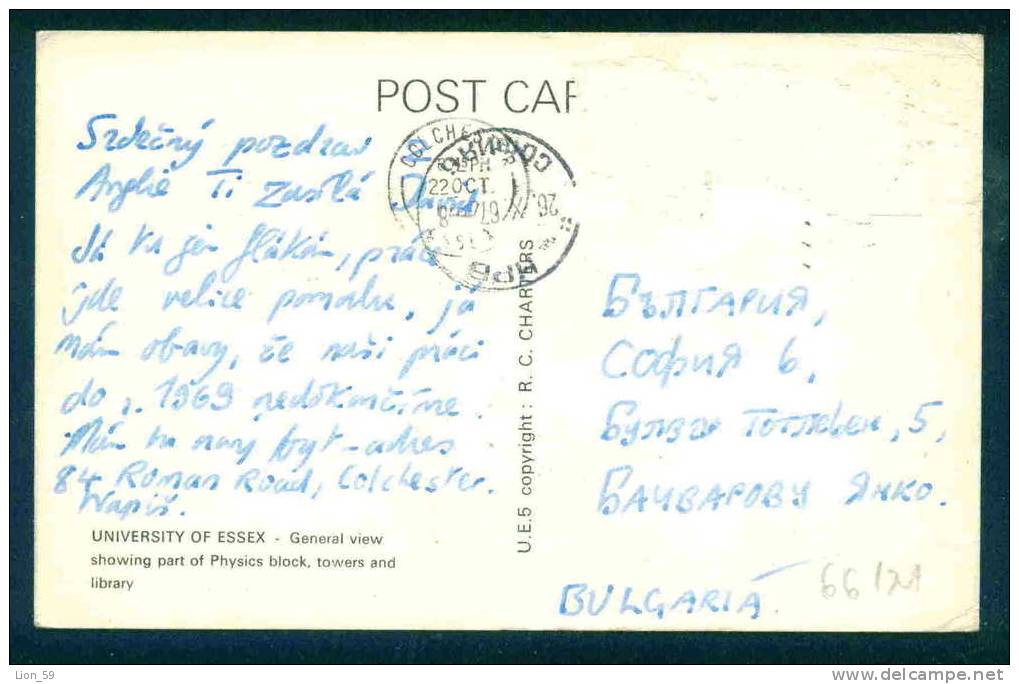 POST CAR
Srdečný pozdrav z
Anglie Ti zasílá David
Já tu jen flákám, práce
jde velice pomalu, já
mám obavy, že naši práci
do r. 1969 nedokončíme.
Mám tu nový byt - adres
84 Roman Road, Colchester.
Napiš.
UNIVERSITY OF ESSEX - General view
showing part of Physics block, towers and
library
U.E.5 copyright: R. C. CHARTERS
COLCHESTER
22 OCT.
СОФИЯ
26
67
НРБ
БЪЛГАРИЯ,
СОФИЯ 6,
5,
БАЧВАРОВУ ЯНКО.
BULGARIA
66/21
Lion_59
www.delcampe.net